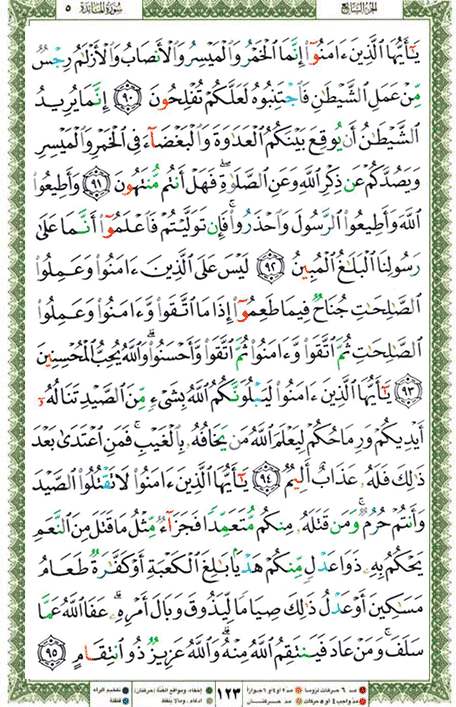 سورة المائدة ٥
الجزء السابع
يَٰٓأَيُّهَا ٱلَّذِينَ ءَامَنُوٓا۟ إِنَّمَا ٱلْخَمْرُ وَٱلْمَيْسِرُ وَٱلْأَنصَابُ وَٱلْأَزْلَٰمُ رِجْسٌ
مِّنْ عَمَلِ ٱلشَّيْطَٰنِ فَٱجْتَنِبُوهُ لَعَلَّكُمْ تُفْلِحُونَ ٩٠ إِنَّمَا يُرِيدُ
ٱلشَّيْطَٰنُ أَن يُوقِعَ بَيْنَكُمُ ٱلْعَدَٰوَةَ وَٱلْبَغْضَآءَ فِى ٱلْخَمْرِ وَٱلْمَيْسِرِ
وَيَصُدَّكُمْ عَن ذِكْرِ ٱللَّهِ وَعَنِ ٱلصَّلَوٰةِ ۖ فَهَلْ أَنتُم مُّنتَهُونَ ٩١ وَأَطِيعُوا۟
ٱللَّهَ وَأَطِيعُوا۟ ٱلرَّسُولَ وَٱحْذَرُوا۟ ۚ فَإِن تَوَلَّيْتُمْ فَٱعْلَمُوٓا۟ أَنَّمَا عَلَىٰ
رَسُولِنَا ٱلْبَلَٰغُ ٱلْمُبِينُ ٩٢ لَيْسَ عَلَى ٱلَّذِينَ ءَامَنُوا۟ وَعَمِلُوا۟
ٱلصَّٰلِحَٰتِ جُنَاحٌ فِيمَا طَعِمُوٓا۟ إِذَا مَا ٱتَّقَوا۟ وَّءَامَنُوا۟ وَعَمِلُوا۟
ٱلصَّٰلِحَٰتِ ثُمَّ ٱتَّقَوا۟ وَّءَامَنُوا۟ ثُمَّ ٱتَّقَوا۟ وَّأَحْسَنُوا۟ ۗ وَٱللَّهُ يُحِبُّ ٱلْمُحْسِنِينَ
٩٣ يَٰٓأَيُّهَا ٱلَّذِينَ ءَامَنُوا۟ لَيَبْلُوَنَّكُمُ ٱللَّهُ بِشَىْءٍ مِّنَ ٱلصَّيْدِ تَنَالُهُۥٓ
أَيْدِيكُمْ وَرِمَاحُكُمْ لِيَعْلَمَ ٱللَّهُ مَن يَخَافُهُۥ بِٱلْغَيْبِ ۚ فَمَنِ ٱعْتَدَىٰ بَعْدَ
ذَٰلِكَ فَلَهُۥ عَذَابٌ أَلِيمٌ ٩٤ يَٰٓأَيُّهَا ٱلَّذِينَ ءَامَنُوا۟ لَا تَقْتُلُوا۟ ٱلصَّيْدَ
وَأَنتُمْ حُرُمٌ ۚ وَمَن قَتَلَهُۥ مِنكُم مُّتَعَمِّدًا فَجَزَآءٌ مِّثْلُ مَا قَتَلَ مِنَ ٱلنَّعَمِ
يَحْكُمُ بِهِۦ ذَوَا عَدْلٍ مِّنكُمْ هَدْيًۢا بَٰلِغَ ٱلْكَعْبَةِ أَوْ كَفَّٰرَةٌ طَعَامُ
مَسَٰكِينَ أَوْ عَدْلُ ذَٰلِكَ صِيَامًا لِّيَذُوقَ وَبَالَ أَمْرِهِۦ ۗ عَفَا ٱللَّهُ عَمَّا
سَلَفَ ۚ وَمَنْ عَادَ فَيَنتَقِمُ ٱللَّهُ مِنْهُ ۗ وَٱللَّهُ عَزِيزٌ ذُو ٱنتِقَامٍ ٩٥
١٢٣
مد ٦ حركات لزوما
مد ٢ أو ٤ أو ٦ جوازا
مد واجب ٤ أو ٥ حركات
مد حركتان
إخفاء، ومواقع الغنة (حركتان)
إدغام، وما لا يلفظ
تفخيم الراء
قلقلة